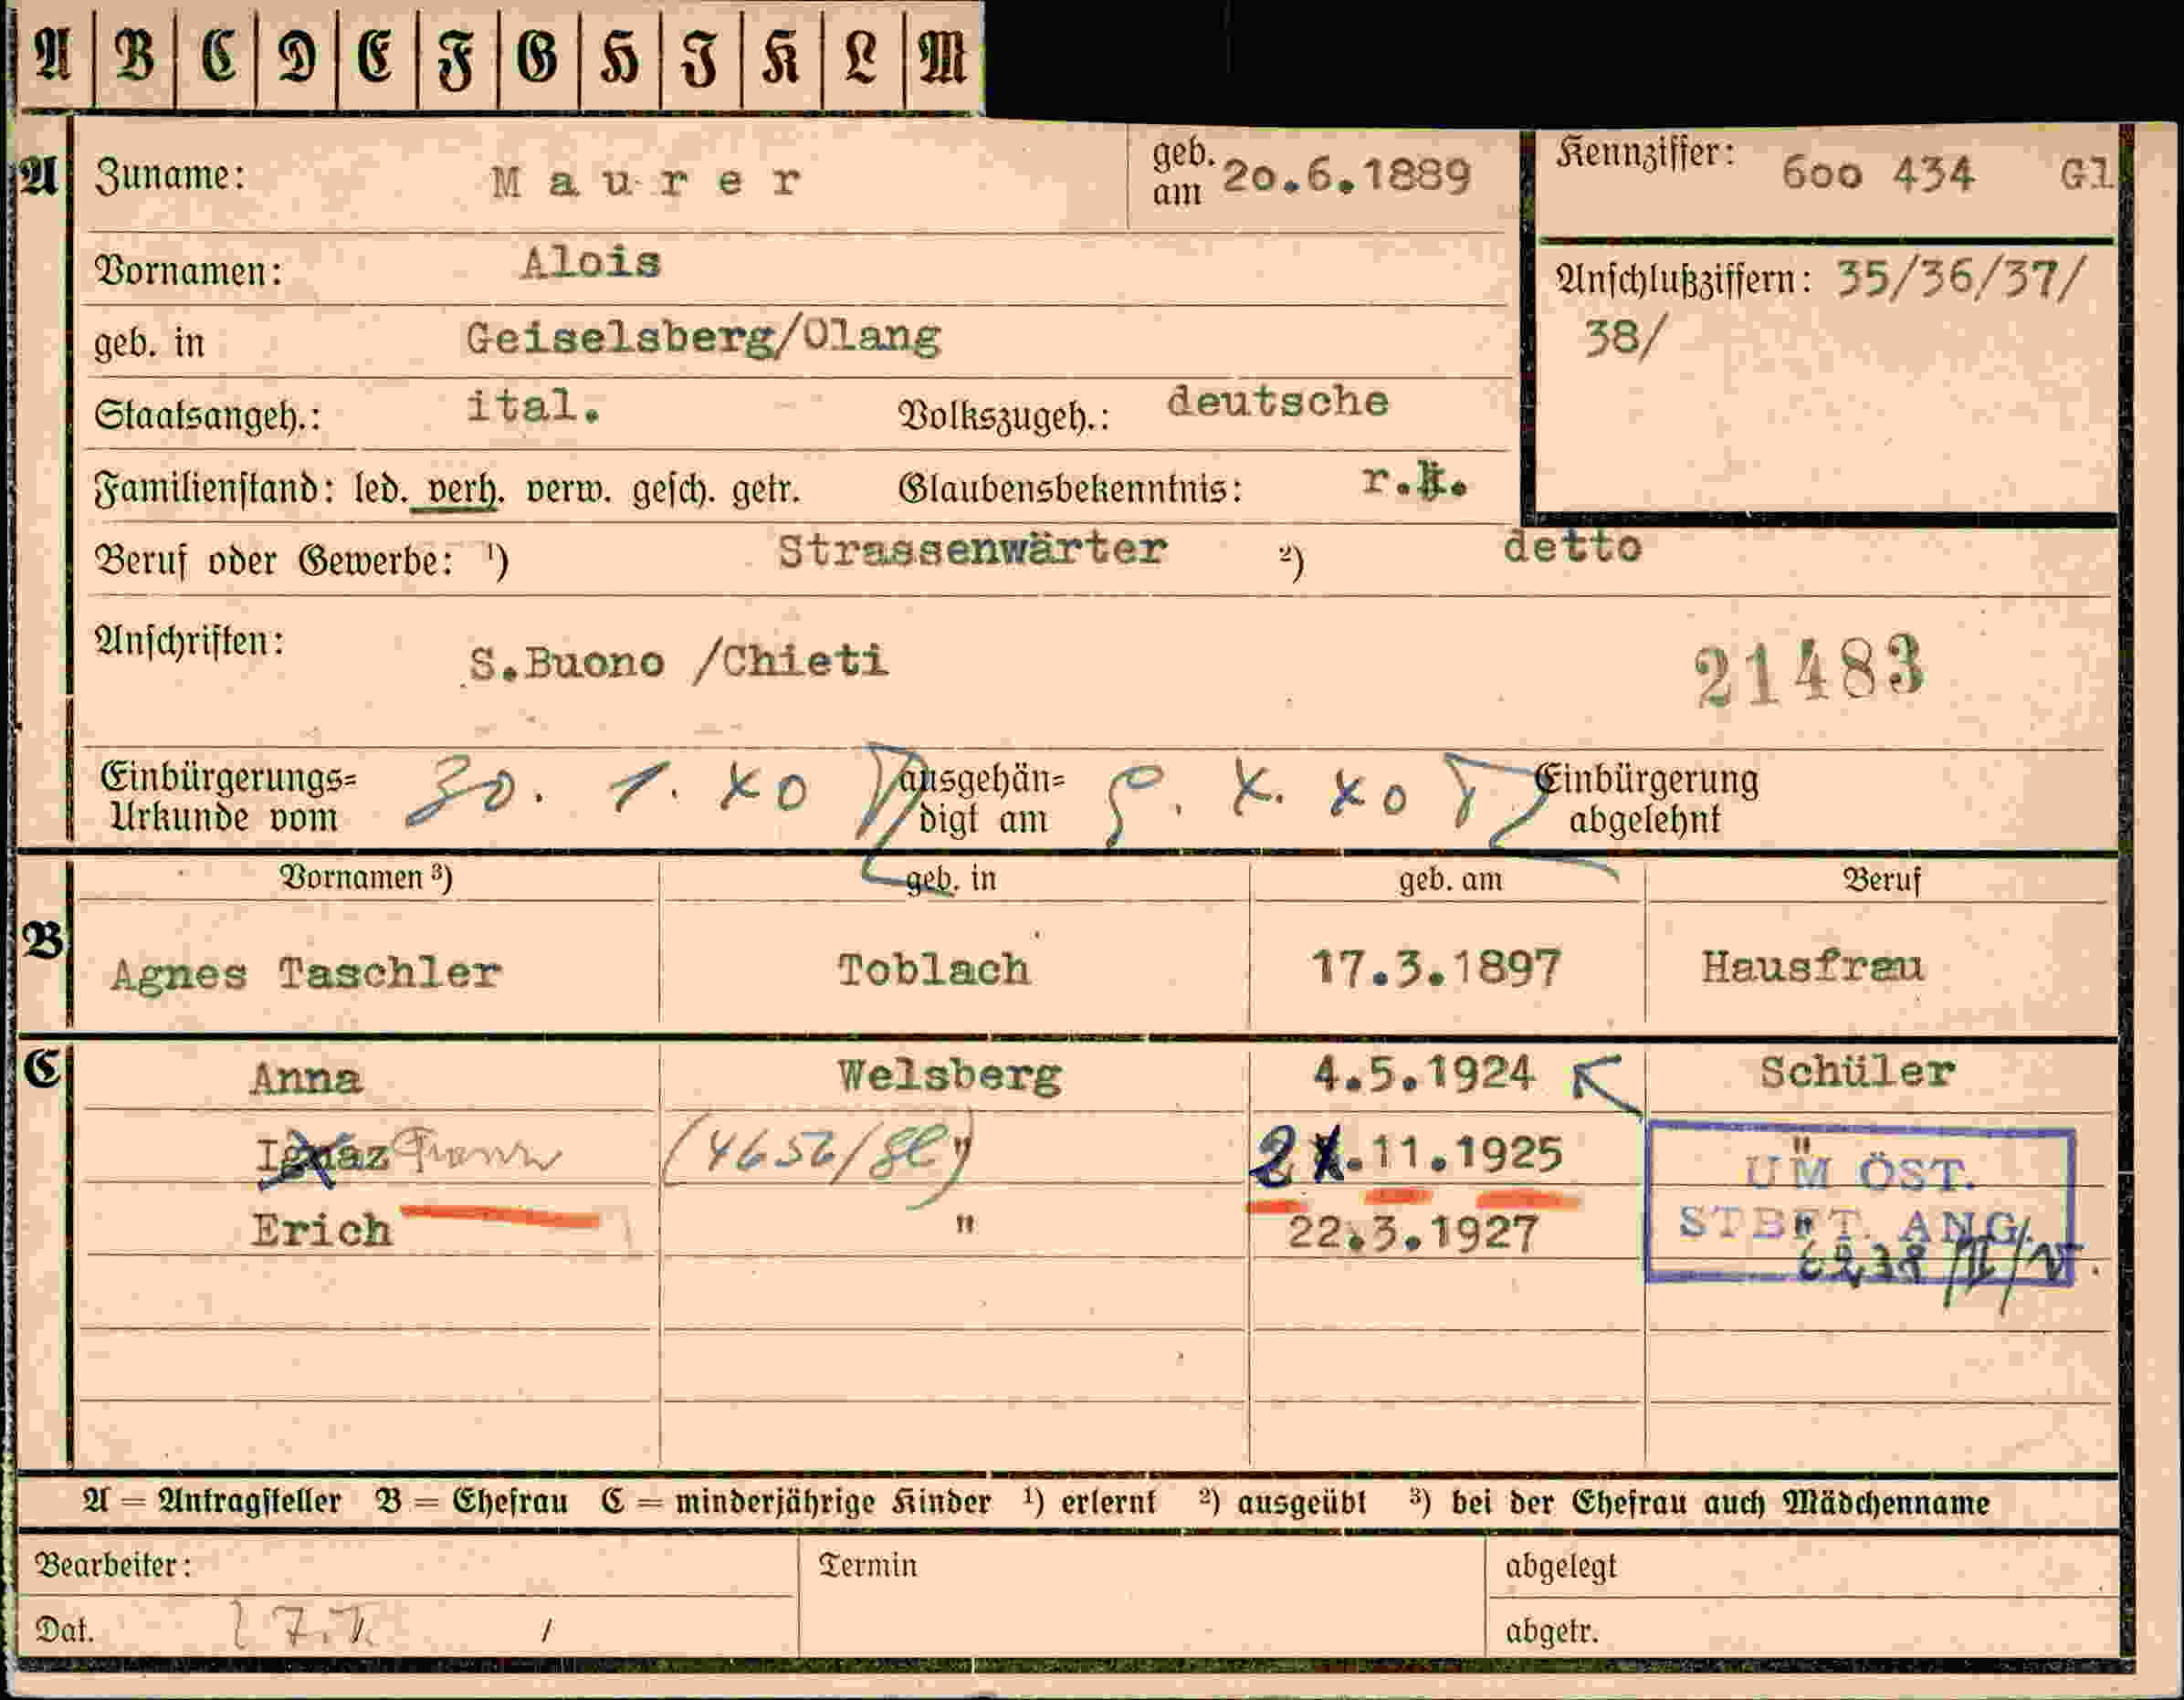 A B C D E F G H I K L M
A Zuname: Maurer geb. am 20.6.1889 Kennziffer: 600 434 Gl
Vornamen: Alois Anschlußziffern: 35/36/37/
38/
geb. in Geiselsberg/Olang
Staatsangeh.: ital. Volkszugeh.: deutsche
Familienstand: led. verh. verw. gesch. getr. Glaubensbekenntnis: r.k.
Beruf oder Gewerbe: ¹) Strassenwärter ²) detto
Anschriften: S.Buono /Chieti 21483
Einbürgerungs= ausgehän= Einbürgerung
Urkunde vom 30. 1. 40 digt am 9. 4. 40 abgelehnt
Vornamen ³) geb. in geb. am Beruf
B Agnes Taschler Toblach 17.3.1897 Hausfrau
C Anna Welsberg 4.5.1924 Schüler
Ignaz Franz (4652/ " 2.11.1925 "
UM ÖST.
Erich " 22.3.1927 "
STBFT. ANG.
A = Antragsteller B = Ehefrau C = minderjährige Kinder ¹) erlernt ²) ausgeübt ³) bei der Ehefrau auch Mädchenname
Bearbeiter: Termin abgelegt
Dat. abgetr.